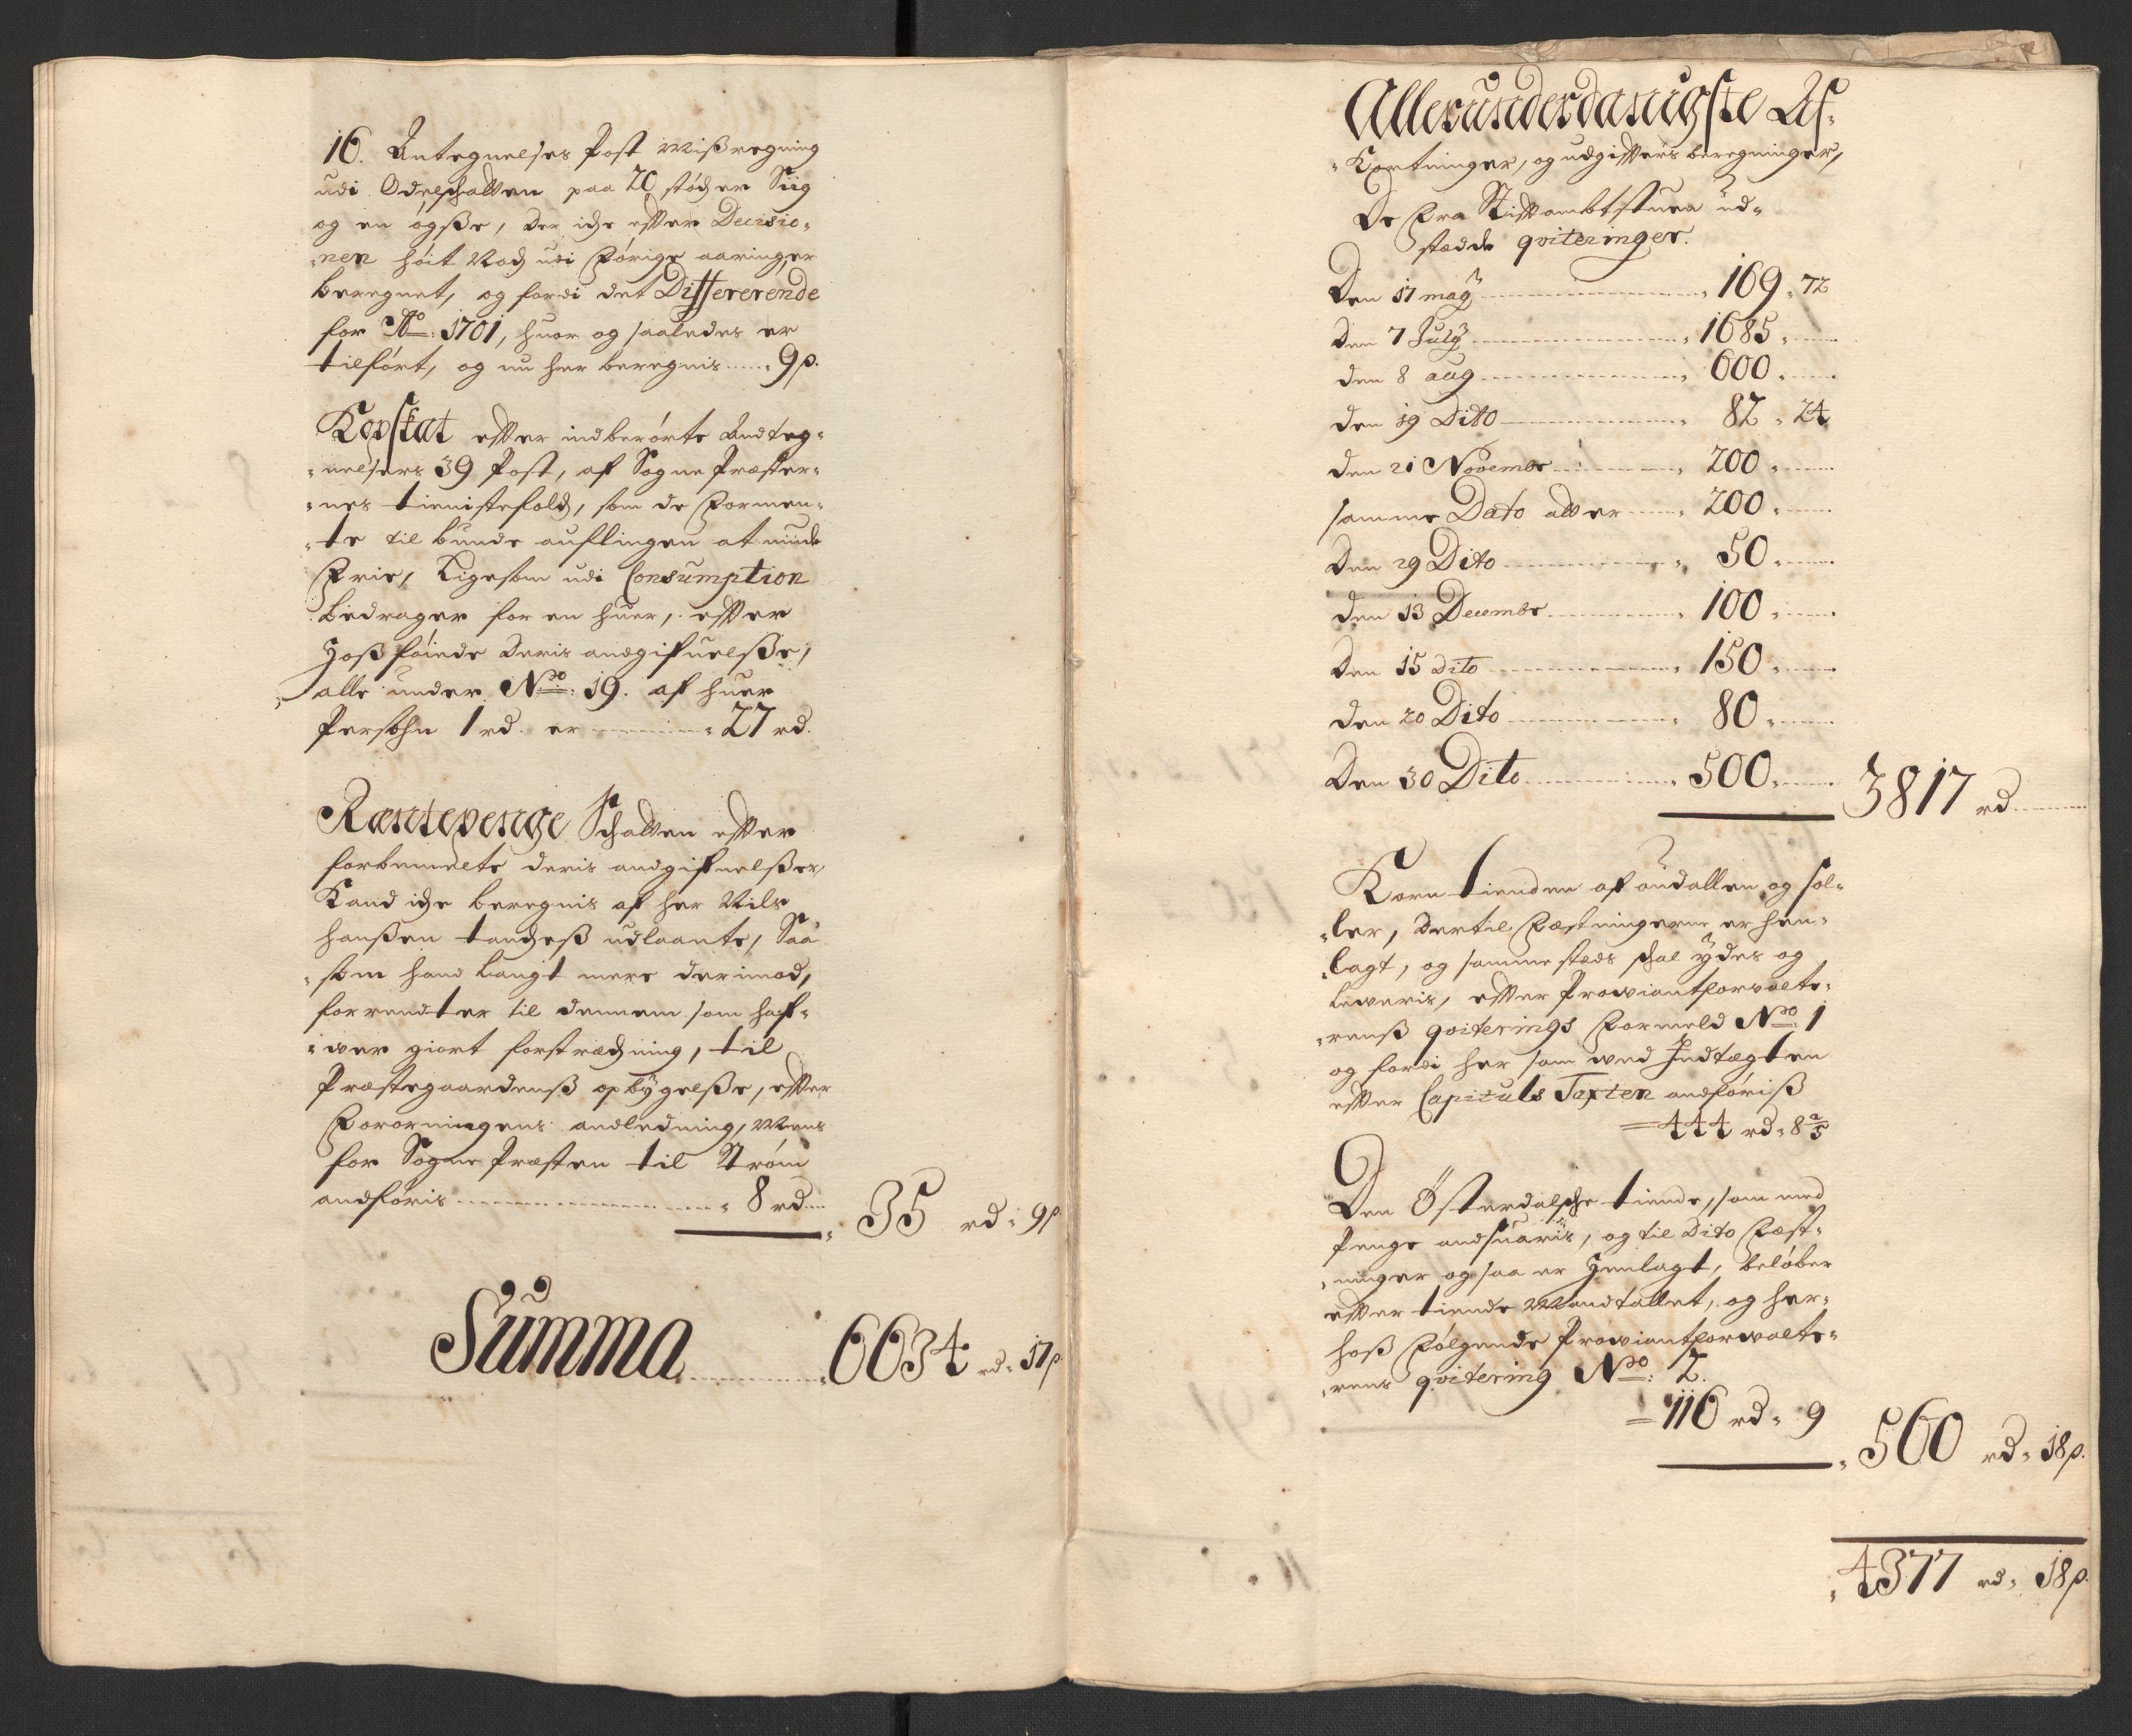 16. Antegnelses Post Mißregning
udi Odelschatten paa 20 støcher Siig
og en øgße, der iche efter Decisio-
nen høit Nock udi Forige aaringer
beregnet, og fordi det Differerende
for Ao: 1701, huor og saaledes er
tilført, og nu her beregnis 9 ß.
Kopskat efter indberørte Andteg-
nelsers 39 Post, af Sogne Præster-
nes tienistefolch, som de Formen-
te til bunde auflingen at niude
Frie, Ligesom udi Consumption
bedrager for en huer, efter
Hoßføiede deris angifuelße,
alle under No: 19. af huer
Persohn 1 rd. er 27 rd.
Rentepenge Schatten efter
forbemelte deris andgifuelßer,
Kand iche beregnis af her Nils
Hanßen udlaante, Saa-
som hand langt mere derimod,
forrendter til dennem som haf-
wer giort forstrechning, til
Præstegaardenß opbygelße, efter
Forordningens andledning, Mens
for Sogne Præsten til Strøm
andføris 8 rd
35 rd 9 ß
Summa 6634 rd 17 ß
Allerunderdanigste Af-
Kortninger, og udgifters beregninger,
De Fra Stiftambtstuen ud-
stædde qviteringer.
Den 17 may 169 72
Den 7 July 1685
den 8 aug 600
den 19 Dito 82 24
den 21 Novembr 200
samme Dato atter 200
Den 29 Dito 50
den 13 Decembr 100
Den 15 dito 150
den 20 Dito 80
Den 30 Dito 500
3817 rd
Korn tienden af Audallen og Sol-
ler, dertil Fæstningerne er hen-
lagt, og sammesteds schal ydes og
leweris, efter Prowiantforwalte-
renß qviterings Formeld No 1
og fordi her som wed Indtægten
efter Capituls Taxten andføriß
444 rd 8 2/5
Den Østerdalsche tiende, som med
Penge andsuaris, og til Dito Fæst-
ninger ogsaa er Henlagt, beløber
efter tiende Mandtallet, og her-
hoß Følgende Prowiantforwalte-
rens qvitering No: 2.
116 rd 9
560 rd 18 ß.
4377 rd 18 ß.